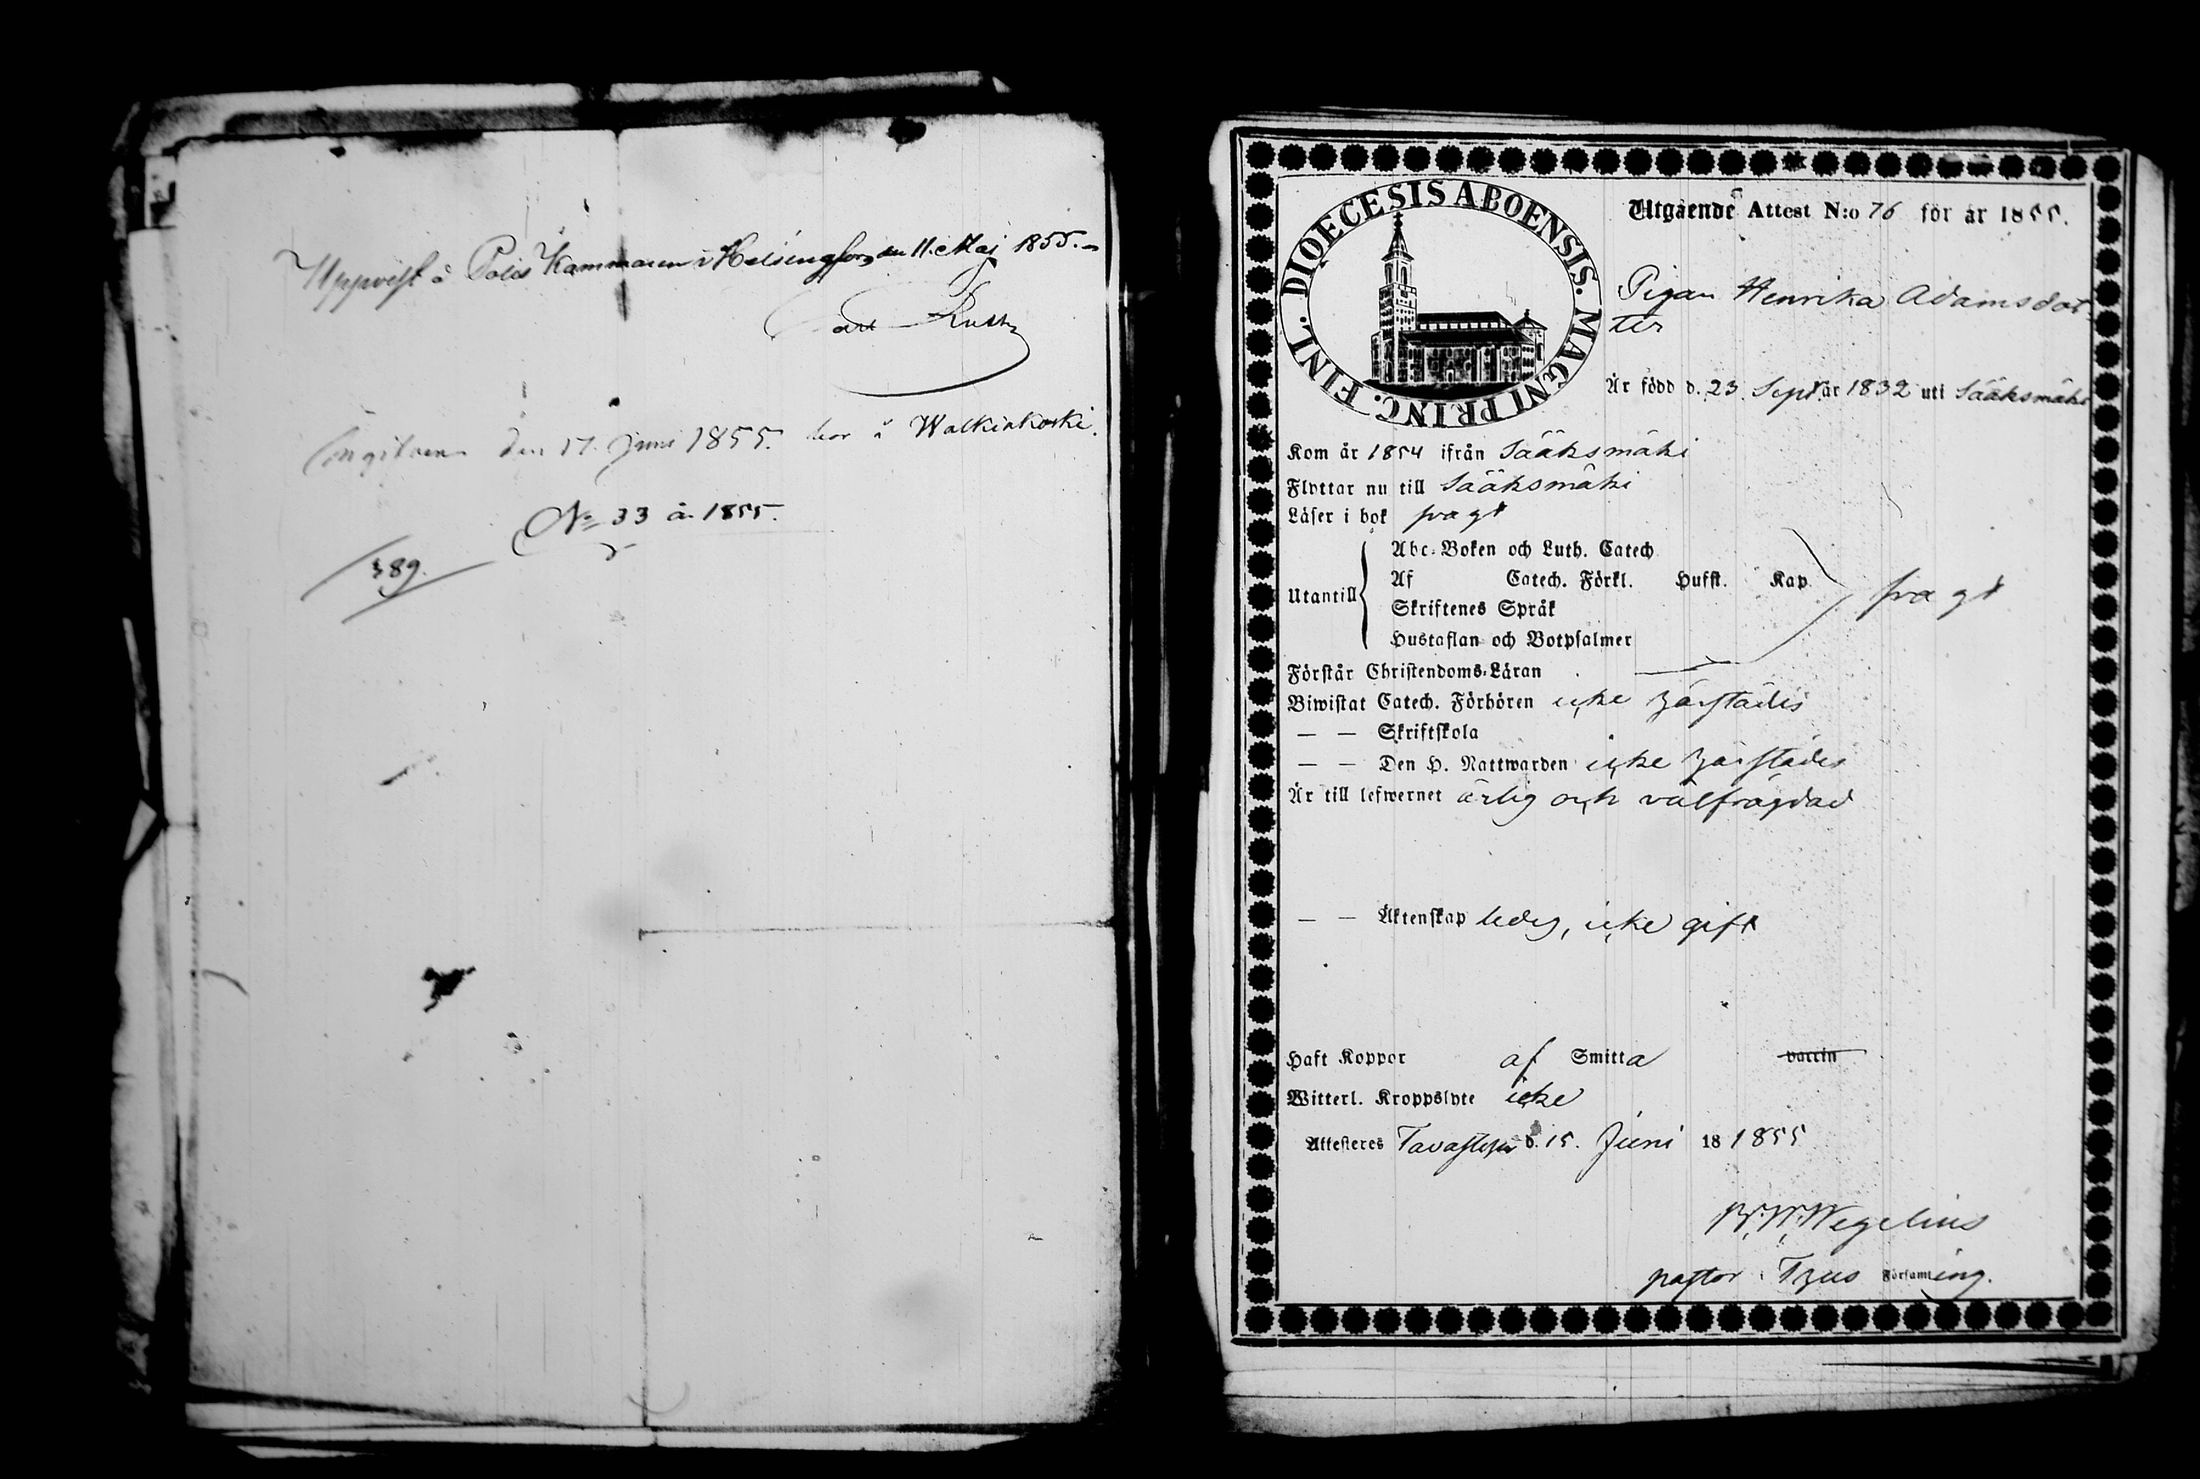 Uppvist å Polis Kammaren i Helsingfors den 11. Maj 1855.
Angifven den 17. Juni 1855. bor å Walkiakoski.
No 33 år 1855.
389.
DIOECESIS ABOENSIS. MAGNI PRINC. FINL.
Utgående Attest N:o 76 för år 1855.
Pigan Henrika Adamsdot-
ter
Är född d. 23 Sept år 1832 uti Sääksmäki
Kom år 1854 ifrån Sääksmäki
Flyttar nu till Sääksmäki
Läser i bok svagt
Utantill
Abc-Boken och Luth. Catech
Af Catech. Förkl. Hufst. Kap
svagt
Skriftenes Språk
Hustaflan och Botpsalmer
Förstår Christendoms-Läran
Biwistat Catech. Förhören icke härstädes
— — Skriftskola
— — Den H. Nattwarden icke härstädes
Är till lefwernet ärlig och välfrägdad
— — Äktenskap ledig, icke gift
Haft Koppor af Smitta vaccin
Witterl. Kroppslyte icke
Attesteres Tavastehus d. 15. Juni 18 1855
Wegelius
pastor Församling.